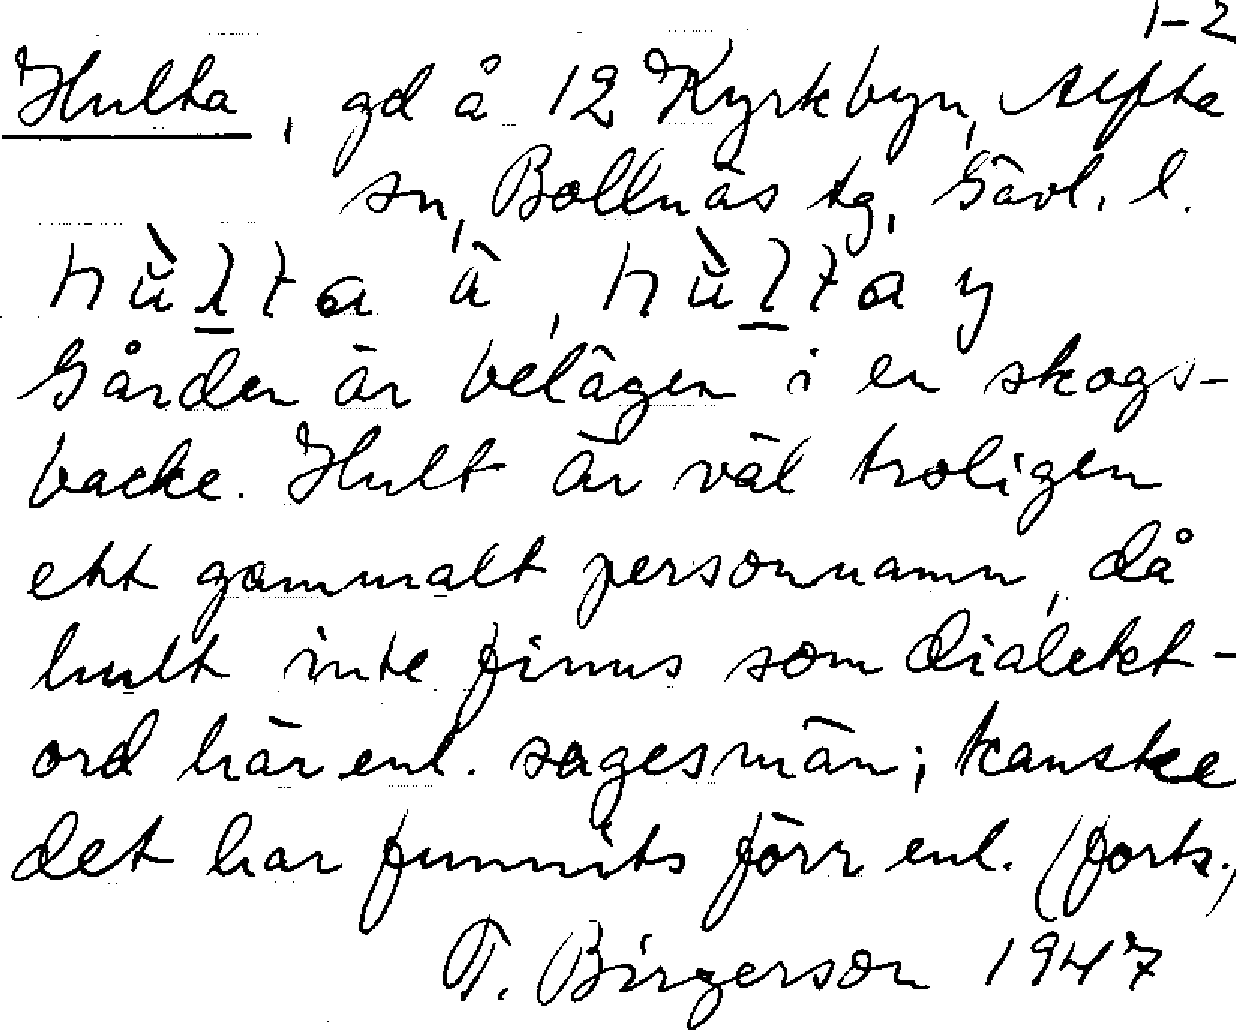 1-2
Hulta, gd å 12 Kyrkbyn, Alfta
sn, Bollnäs tg, Gävl. l.
hùlta ä, hùlta y
Gården är belägen i en skogs-
backe. Hult är väl troligen
ett gammalt personnamn, då
hult inte finns som dialekt-
ord här enl. sagesmän; kanske
det har funnits förr enl. (forts.)
T. Birgerson 1947